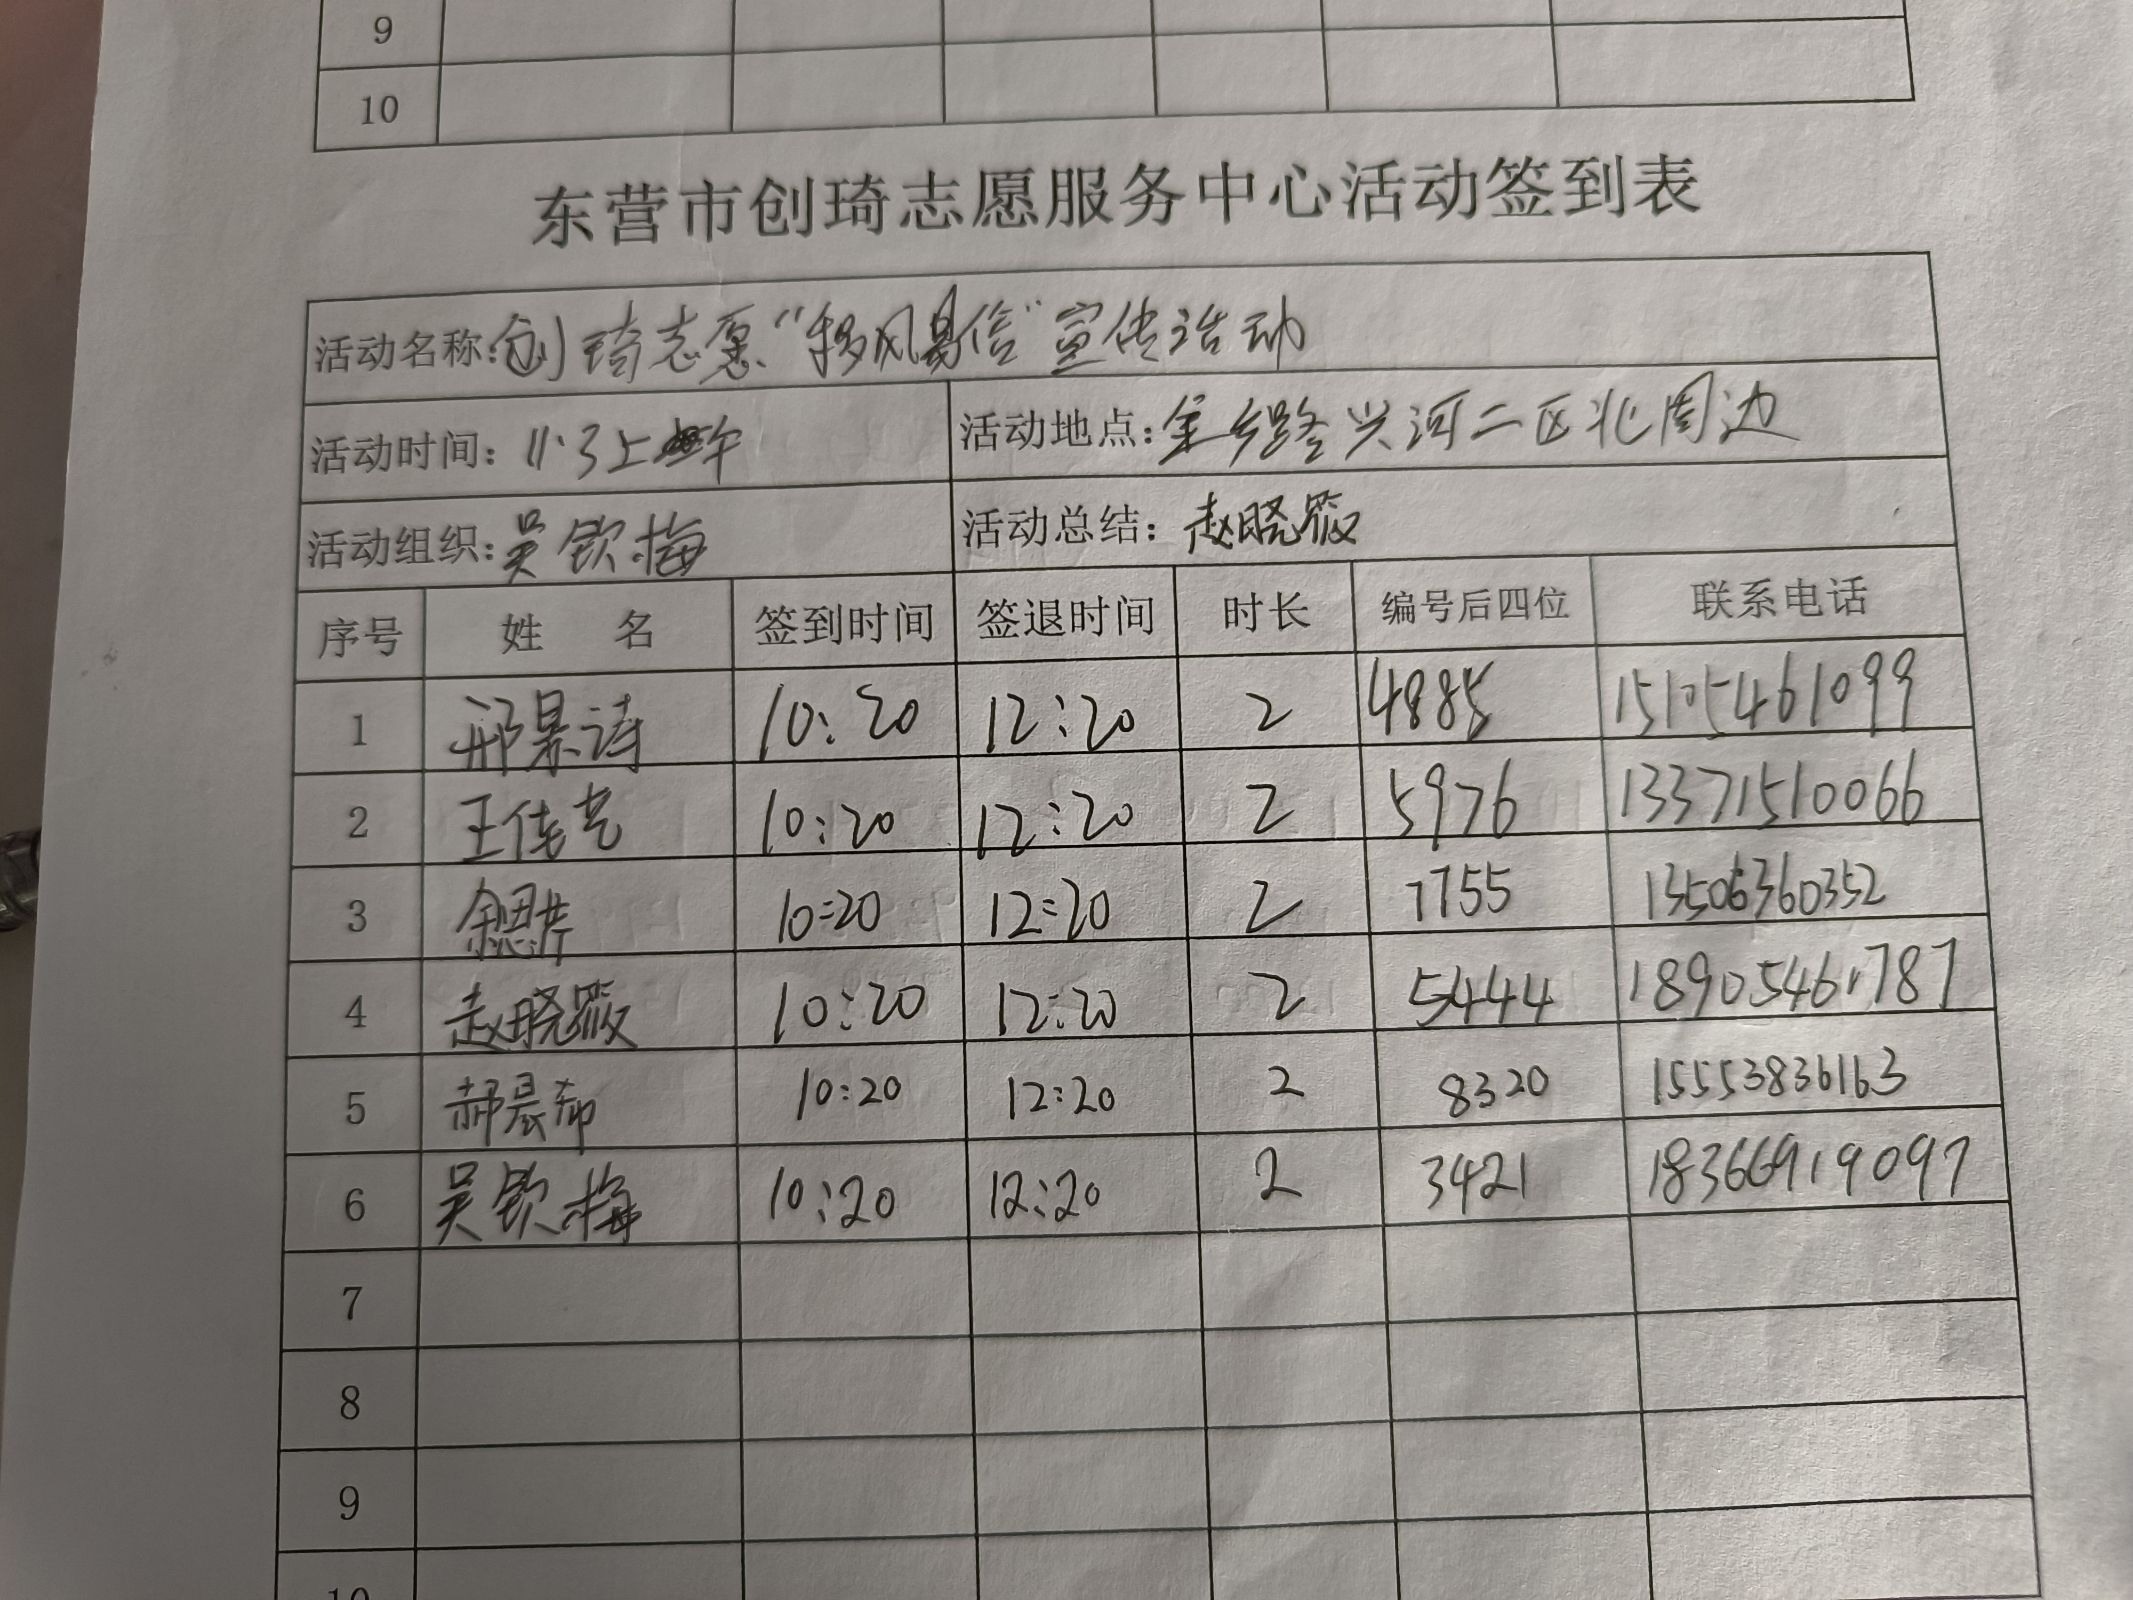 9
10
东营市创琦志愿服务中心活动签到表
活动名称:创琦志愿“移风易俗”宣传活动
活动时间:11.3上午 活动地点:兴河二区北周边
活动组织:吴钦梅 活动总结:赵晓筱
序号 姓 名 签到时间 签退时间 时长 编号后四位 联系电话
1 邢景诗 10:20 12:20 2 4885 15105461099
2 王佳艺 10:20 12:20 2 5976 13371510066
3 10:20 12:20 2 7755 13506360352
4 赵晓筱 10:20 12:20 2 5444 18905461787
5 郝晨希 10:20 12:20 2 8320 15553836163
6 吴钦梅 10:20 12:20 2 3421 18366919097
7
8
9
10